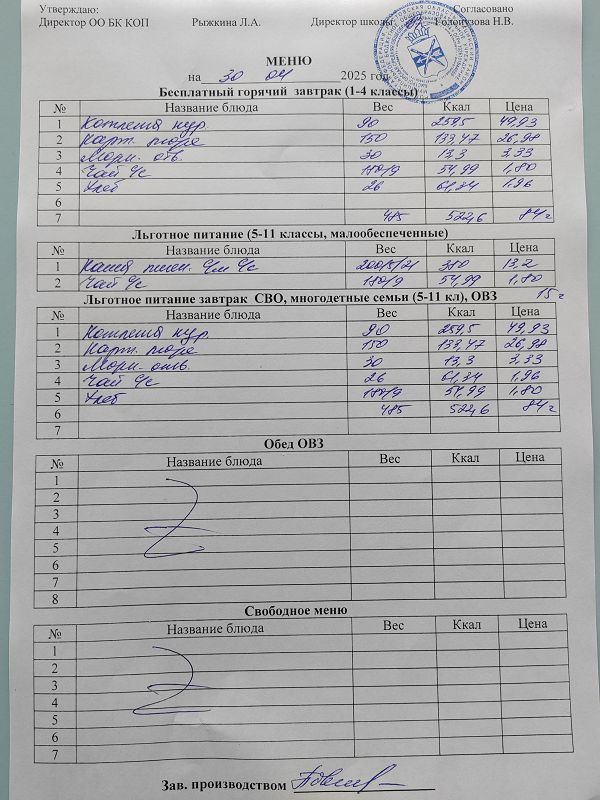 Утверждаю: Согласовано
Директор ОО БК КОП Рыжкина Л.А. Директор школы Голопузова Н.В.
МЕНЮ
на 30 04 2025 год
Бесплатный горячий завтрак (1-4 классы)
№ Название блюда Вес Ккал Цена
1 Котлета кур. 90 259,5 49,93
2 Карт. пюре 150 133,47 26,98
3 Морк. отв. 30 13,3 3,33
4 Чай с/с 180/9 54,99 1,80
5 Хлеб 26 61,34 1,96
6
7 485 522,6 84 г
Льготное питание (5-11 классы, малообеспеченные)
№ Название блюда Вес Ккал Цена
1 Каша пшен. 200/5/21 380 13,2
2 Чай с/с 180/9 54,99 1,80
15 г
Льготное питание завтрак СВО, многодетные семьи (5-11 кл), ОВЗ
№ Название блюда Вес Ккал Цена
1 Котлета кур. 90 259,5 49,93
2 Карт. пюре 150 133,47 26,98
3 Морк. отв. 30 13,3 3,33
4 Чай с/с 26 61,34 1,96
5 Хлеб 180/9 54,99 1,80
6 485 522,6 84 г
7
Обед ОВЗ
№ Название блюда Вес Ккал Цена
1
2
3
4
5
6
7
8
Свободное меню
№ Название блюда Вес Ккал Цена
1
2
3
4
5
6
7
Зав. производством